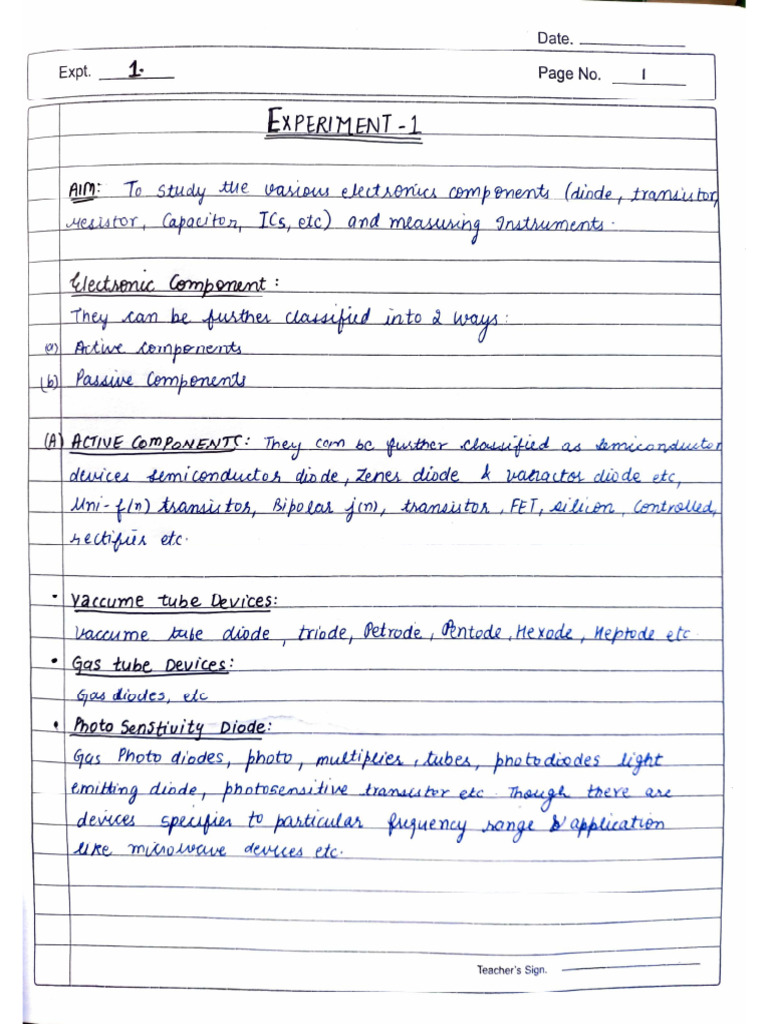 Date.
Expt. 1.
Page No. 1
EXPERIMENT - 1
AIM: To study the various electronics components (diode, transistor,
resistor, Capacitor, ICs, etc) and measuring Instruments.
Electronic Component:
They can be further classified into 2 ways:
(a) Active components
(b) Passive Components
(A) ACTIVE COMPONENTS: They can be further classified as semiconductor
devices semiconductor diode, Zener diode & varactor diode etc,
Uni-f(n) transistor, Bipolar j(n), transistor, FET, silicon, controlled,
rectifier etc.
• Vaccume tube Devices:
Vaccume tube diode, triode, Petrode, Pentode, Hexode, Heptode etc.
• Gas tube Devices:
Gas diodes, etc
• Photo Senstivity Diode:
Gas Photo diodes, photo, multiplier, tubes, photodiodes light
emitting diode, photosensitive transistor etc. Though there are
devices specifier to particular frequency range & application
like microwave devices etc.
Teacher's Sign.